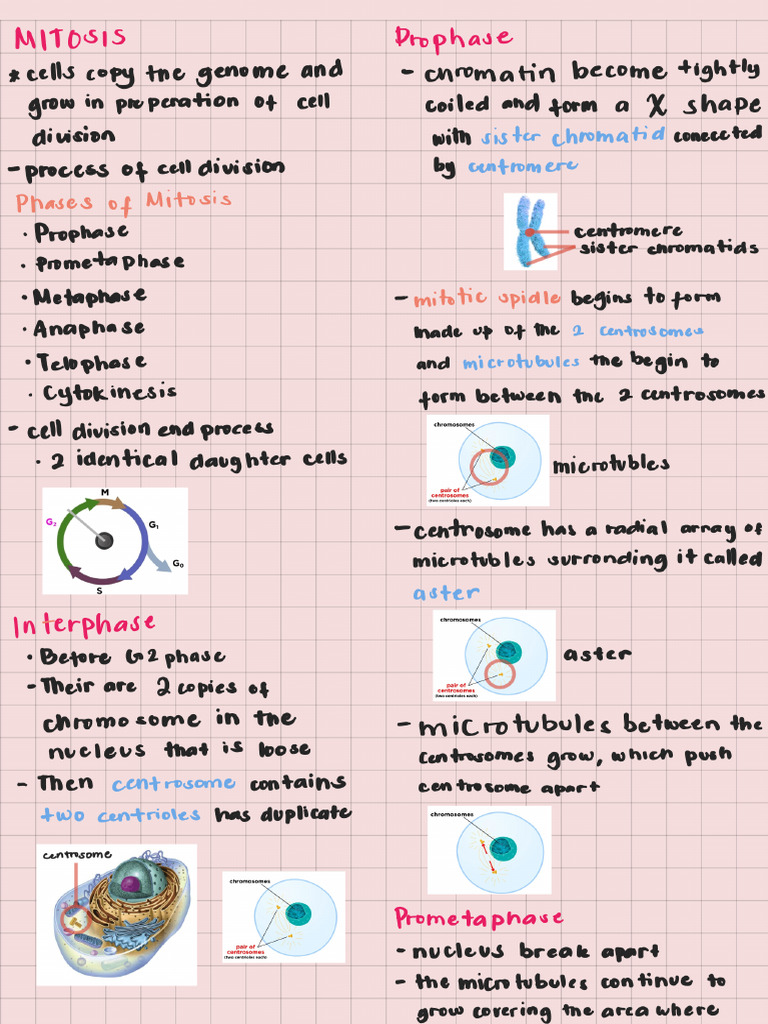 MITOSIS
* cells copy the genome and
grow in preperation of cell
division
- process of cell division
Phases of Mitosis
· Prophase
· Prometaphase
· Metaphase
· Anaphase
· Telophase
· Cytokinesis
- cell division end process
· 2 identical daughter cells
M
G₂
G₁
G₀
S
Interphase
· Before G2 phase
- Their are 2 copies of
chromosome in the
nucleus that is loose
- Then centrosome contains
two centrioles has duplicate
centrosome
chromosomes
pair of
centrosomes
(two centrioles each)
Prophase
- chromatin become tightly
coiled and form a X shape
with sister chromatid conected
by centromere
centromere
sister chromatids
- mitotic spidle begins to form
made up of the 2 centrosomes
and microtubules the begin to
form between the 2 centrosomes
chromosomes
pair of
centrosomes
(two centrioles each)
microtubles
- centrosome has a radial array of
microtubles surronding it called
aster
chromosomes
pair of
centrosomes
(two centrioles each)
aster
- microtubules between the
centrosomes grow, which push
centrosome apart
chromosomes
Prometaphase
- nucleus break apart
- the microtubules continue to
grow covering the area where